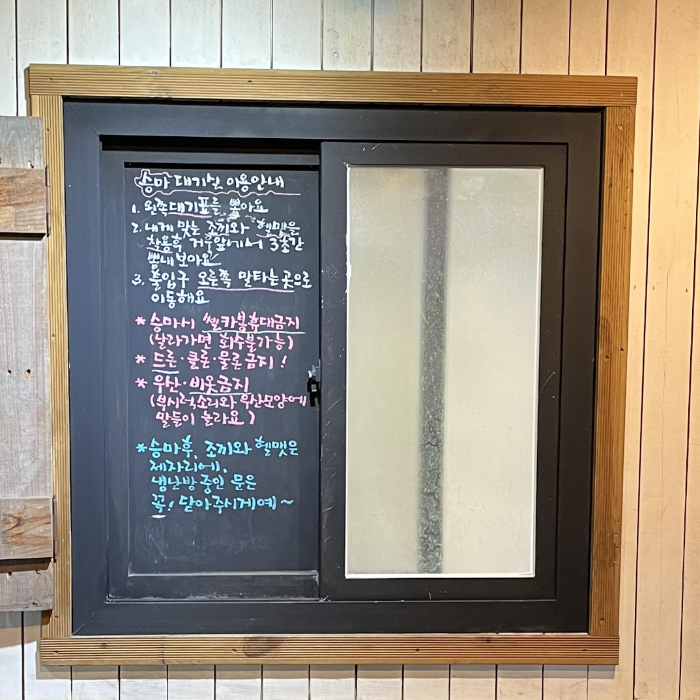 승마 대기실 이용안내
1. 왼쪽대기표를 뽑아요
2. 내게 맞는 조끼와 헬멧을
착용후 거울앞에서 3초간
뽐내보아요
3. 출입구 오른쪽 말타는 곳으로
이동해요
* 승마시 셀카봉휴대금지
(날라가면 회수불가능)
* 드론·클론·물론금지!
* 우산·비옷금지
(부시럭소리와 우산모양에
말들이 놀라요)
* 승마후, 조끼와 헬멧은
제자리에.
냉난방중인 문은
꼭! 닫아주시게예~